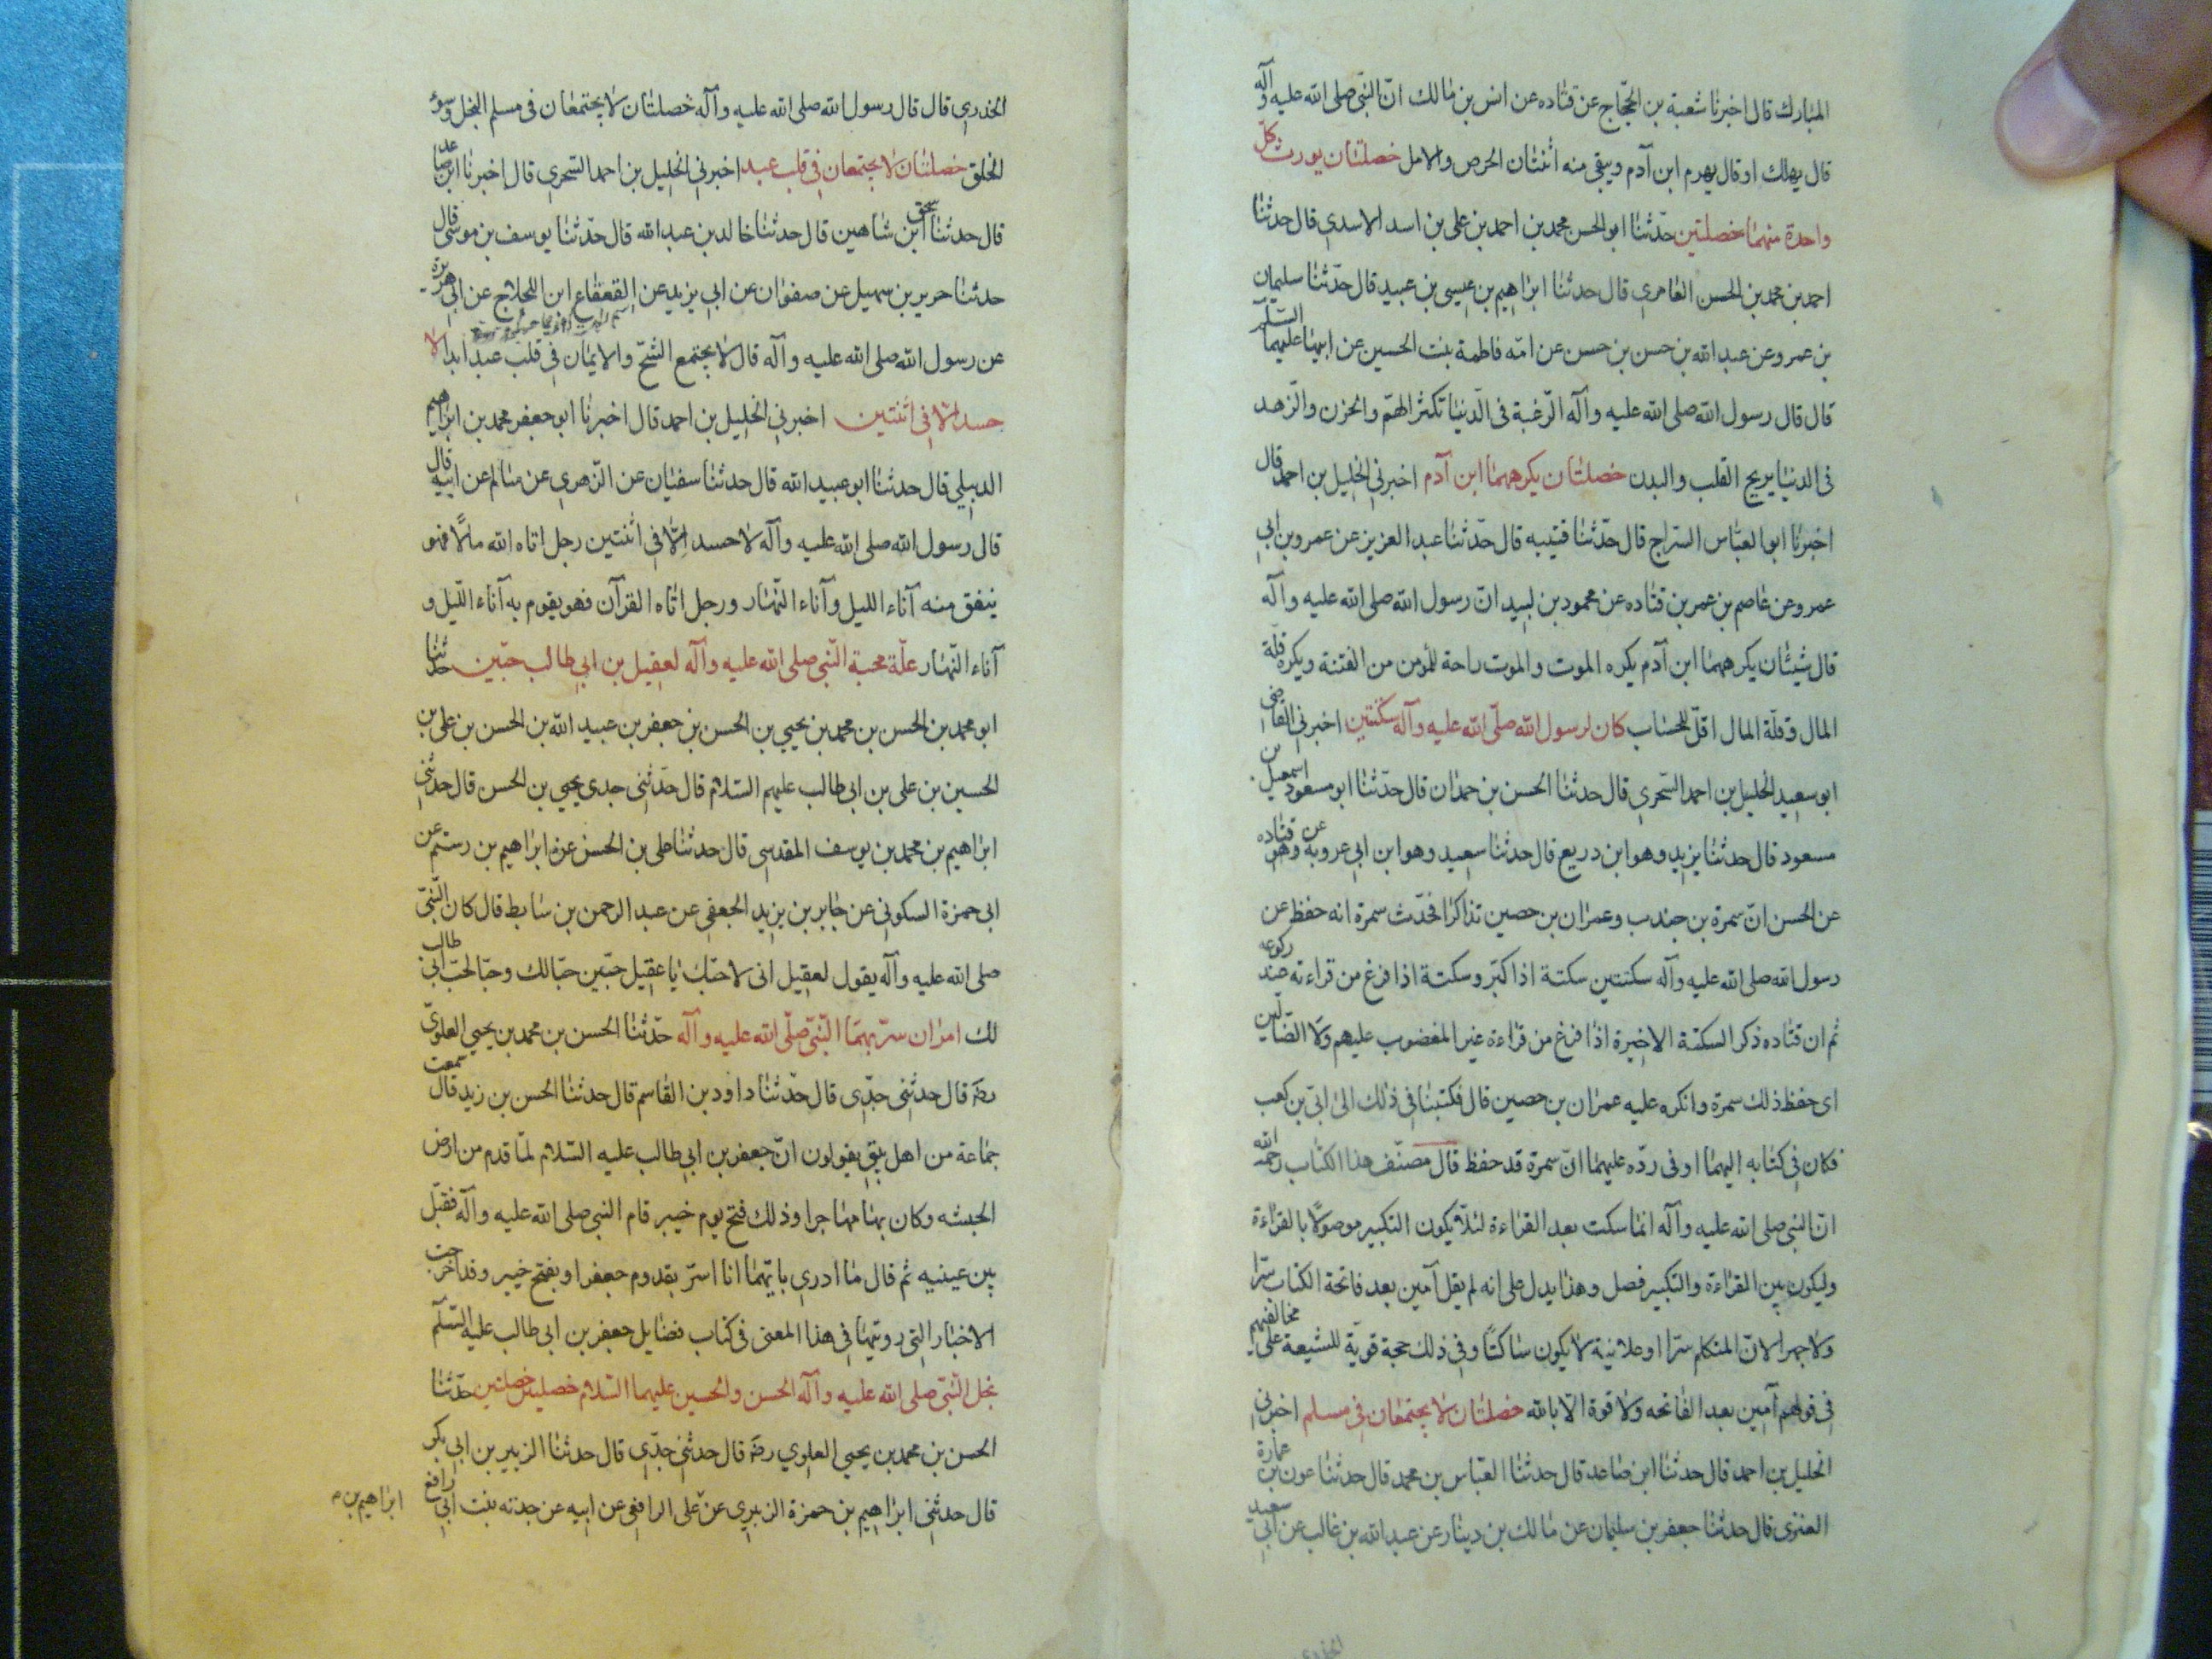 المبارك قال اخبرنا شعبة بن الحجّاج عن قتاده عن انس بن مالك انّ النبّى صلى الله عليه وآله
قال يهلك او قال يهرم ابن آدم ويبقى منه اثنتان الحرص والامل خصلتان يورث كلّ
واحدة منهما خصلتين حدّثنا ابو الحسن محمد بن احمد بن على بن اسد الاسدي قال حدثنا
احمد بن محمد بن الحسن العامري قال حدثنا ابراهيم بن عيسى بن عبيد قال حدّثنا سليمان
بن عمرو عن عبد الله بن حسن بن حسن عن امّه فاطمة بنت الحسين عن ابيها عليهما السلم
قال قال رسول الله صلى الله عليه وآله الرّغبة فى الدّنيا تكثر الهمّ والحزن والزّهد
فى الدنيا يريح القلب والبدن خصلتان يكرههما ابن آدم اخبرني الخليل بن احمد قال
اخبرنا ابو العبّاس السّراج قال حدّثنا قتيبه قال حدّثنا عبد العزيز عن عمرو بن ابي
عمرو عن عاصم بن عمر بن قتاده عن محمود بن لبيد انّ رسول الله صلى الله عليه وآله
قال شيئان يكرههما ابن آدم يكره الموت والموت راحة للمؤمن من الفتنة ويكره قلّة
المال وقلّة المال اقلّ للحساب كان لرسول الله صلّى الله عليه وآله سكتتين اخبرني القاضى
ابو سعيد الخليل بن احمد السّجري قال حدثنا الحسن بن حمدان قال حدّثنا ابو مسعود اسمعيل بن
مسعود قال حدثنا يزيد وهو ابن دريع قال حدثنا سعيد وهو ابن ابي عروبة عن قتاده
عن الحسن انّ سمرة بن جندب وعمران بن حصين تذاكرا فحدّث سمرة انه حفظ عن
رسول الله صلى الله عليه وآله سكتتين سكتة اذا كبّر وسكتة اذا فرغ من قراءته عند ركوعه
ثم ان قتاده ذكر السكتة الاخيرة اذا فرغ من قراءة غير المغضوب عليهم ولا الضّالين
اى حفظ ذلك سمرة وانكره عليه عمران بن حصين قال فكتبنا فى ذلك الى ابىّ بن كعب
فكان فى كتابه اليهما او فى ردّه عليهما انّ سمرة قد حفظ قال مصنّف هذا الكتاب رحمه الله
انّ النبى صلى الله عليه وآله انما سكت بعد القراءة لئلّا يكون التكبير موصولًا بالقراءة
وليكون بين القراءة والتكبير فصل وهذا يدل على انه لم يقل آمين بعد فاتحة الكتاب سرّا
ولا جهرا لانّ المتكلم سرّا او علانية لا يكون ساكتًا وفى ذلك حجة قويّة للشيعة على مخالفيهم
فى قولهم آمين بعد الفاتحه ولا قوة الّا بالله خصلتان لا يجتمعان فى مسلم اخبرنى
الخليل بن احمد قال حدثنا ابن صاعد قال حدثنا العبّاس بن محمد قال حدثنا عون بن عمارة
العنزى قال حدثنا جعفر بن سليمان عن مالك بن دينار عن عبد الله بن غالب عن ابي سعيد
الخدري
الخدري قال قال رسول الله صلى الله عليه وآله خصلتان لا يجتمعان فى مسلم البخل وسوء
الخلق خصلتان لا يجتمعان فى قلب عبد اخبرني الخليل بن احمد السّجري قال اخبرنا ابن صاعد
قال حدثنا اسحق بن شاهين قال حدثنا خالد بن عبد الله قال حدّثنا يوسف بن موسى قال
حدثنا حرير بن سهيل عن صفوان عن ابي يزيد عن القعقاع ابن اللجلاج عن ابي هريرة
عن رسول الله صلى الله عليه وآله قال لا يجتمع الشحّ والايمان فى قلب عبد ابدا لا
حسد الّا فى اثنتين اخبرني الخليل بن احمد قال اخبرنا ابو جعفر محمد بن ابراهيم
الديبلي قال حدثنا ابو عبيد الله قال حدثنا سفيان عن الزّهري عن سالم عن ابيه قال
قال رسول الله صلى الله عليه وآله لا حسد الّا فى اثنتين رجل اتاه الله مالًا فهو
ينفق منه آناء الليل وآناء النّهار ورجل اتاه القرآن فهو يقوم به آناء اللّيل و
آناء النّهار علّة محبة النّبى صلى الله عليه وآله لعقيل بن ابي طالب حبّين حدثنا
ابو محمد بن الحسن بن محمد بن يحيى بن الحسن بن جعفر بن عبيد الله بن الحسن بن على بن
الحسين بن على بن ابى طالب عليهم السّلام قال حدّثنى جدى يحيى بن الحسن قال حدثنى
ابراهيم بن محمد بن يوسف المقدسى قال حدثنا على بن الحسن عن ابراهيم بن رستم عن
ابى حمزة السكوني عن جابر بن يزيد الجعفي عن عبد الرحمن بن سابط قال كان النّبىّ
صلى الله عليه وآله يقول لعقيل انى لاحبّك يا عقيل حبّين حبّا لك وحبّا لحبّ ابى طالب
لك امران سرّ بهما النّبىّ صلّى الله عليه وآله حدّثنا الحسن بن محمد بن يحيى العلوىّ
رضه قال حدثنى جدّى قال حدّثنا داود بن القاسم قال حدثنا الحسن بن زيد قال سمعت
جماعة من اهل بيتى يقولون انّ جعفر بن ابي طالب عليه السّلام لمّا قدم من ارض
الحبشه وكان بها مهاجرا وذلك فتح يوم خيبر قام النبى صلى الله عليه وآله فقبّل
بين عينيه ثم قال ما ادرى بايّهما انا اسرّ بقدوم جعفر او بفتح خيبر وقد اخرجت
الاخبار التى رويتها فى هذا المعنى فى كتاب فضايل جعفر بن ابى طالب عليه السلم
نحل النّبىّ صلى الله عليه وآله الحسن والحسين عليهما السّلام خصلتين حدّثنا
الحسن بن محمد بن يحيى العلوي رضه قال حدثنى جدّى قال حدثنا الزبير بن ابى بكر
قال حدثنى ابراهيم بن حمزة الزبيري عن على الرافعى عن ابيه عن جدته بنت ابى رافع
ابراهيم بن